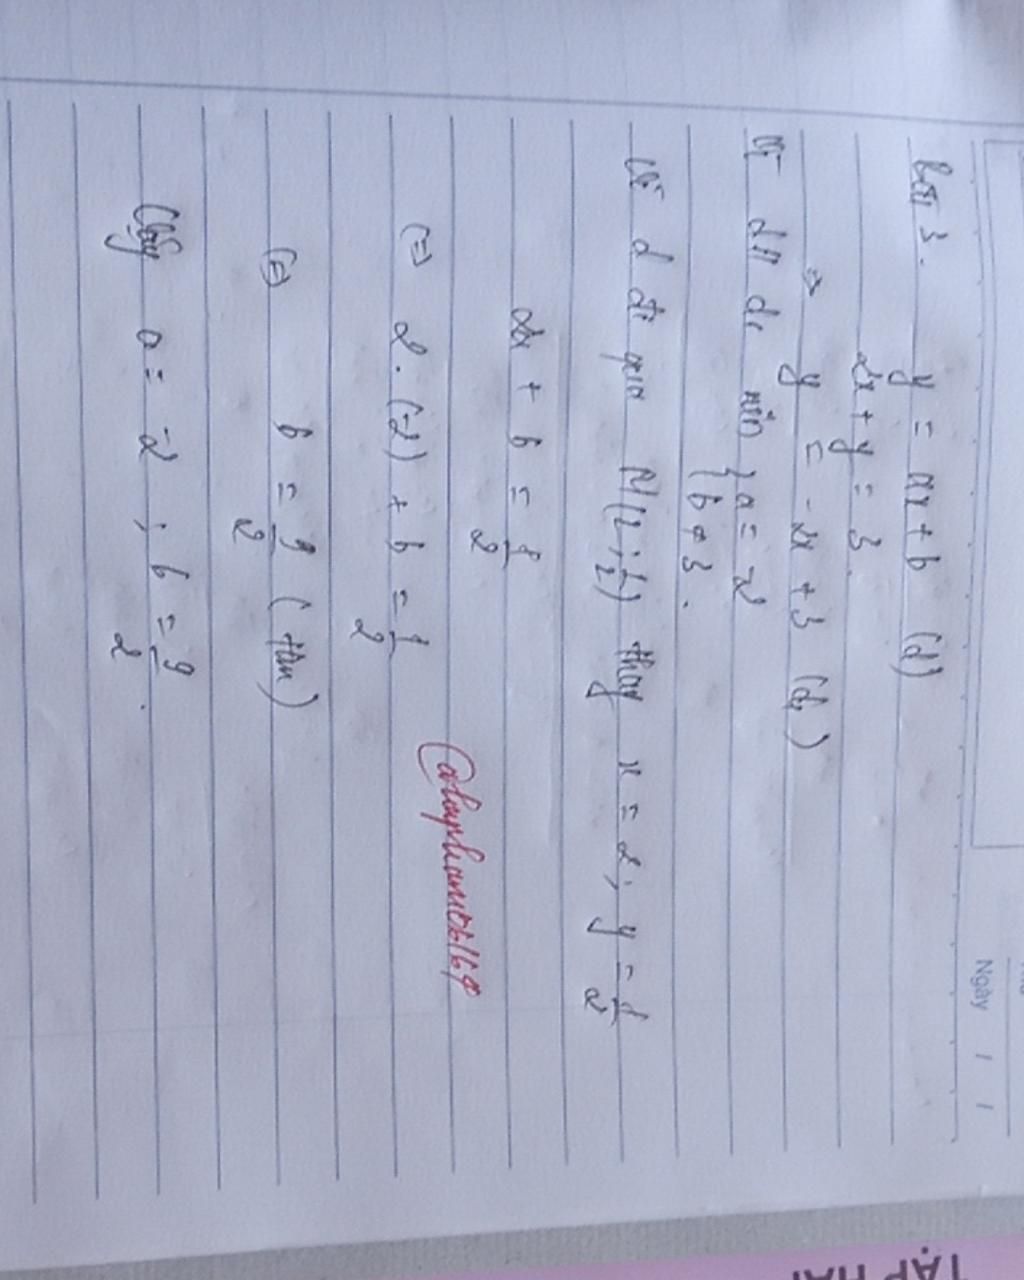 Bài 3. y = ax + b (d)
2x + y = 3.
=> y = -2x + 3 (d₁)
Vì d // d₁ nên { a = -2
{ b ≠ 3.
Vì d đi qua M(2; 1/2) thay x = 2; y = 1/2
2x + b = 1/2
(=) 2.(-2) + b = 1/2
(=) b = 9/2 (tm)
Vậy a = -2; b = 9/2.
Ngày / /